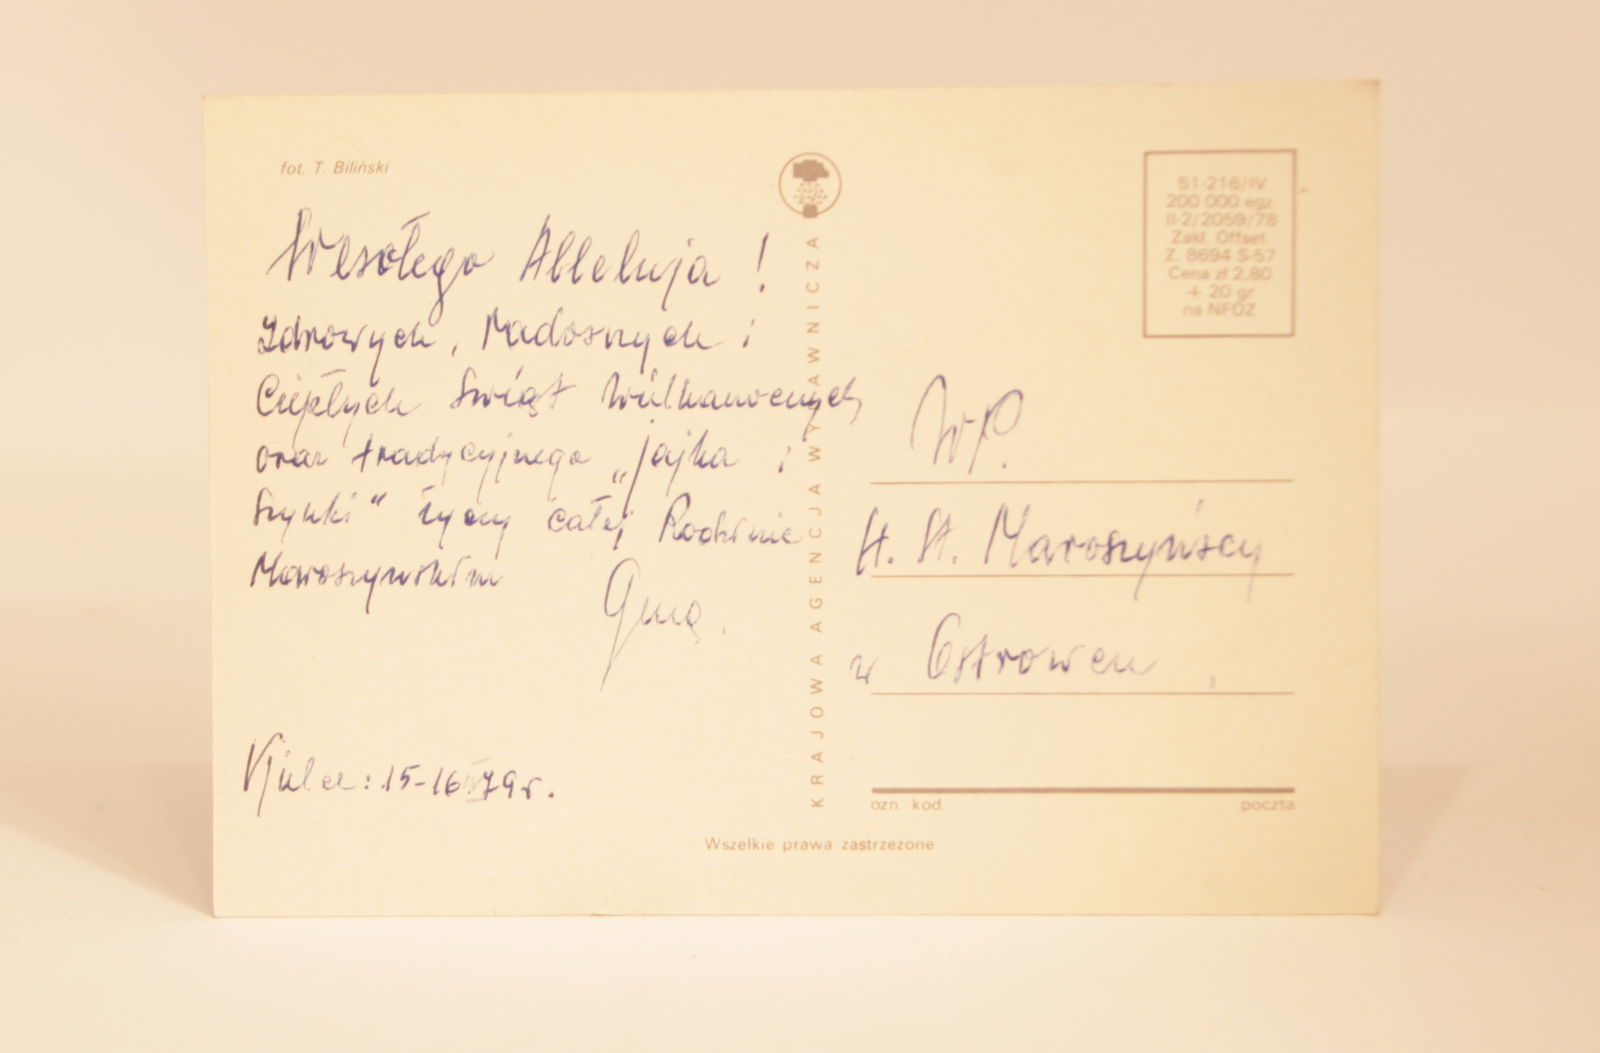 fot. T. Biliński
Wesołego Alleluja !
Zdrowych, Radosnych i
Ciepłych Świąt Wielkanocnych
oraz tradycyjnego „jajka i
Szynki" życzy całej Rodzinie
Maroszyńskim
Kielce: 15-16.IV.79r.
KRAJOWA AGENCJA WYDAWNICZA
51-216/IV
200 000 egz.
II-2/2059/78
Zakł. Offset.
Z. 8694 S-57
Cena zł 2.80
+ 20 gr
na NFOZ
WP.
H. St. Maroszyńscy
w Ostrowcu
ozn. kod.
poczta
Wszelkie prawa zastrzeżone